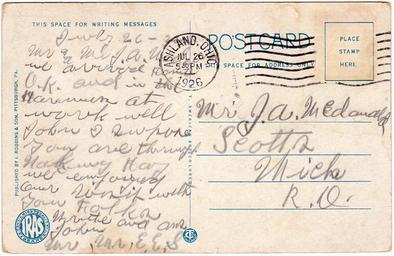 THIS SPACE FOR WRITING MESSAGES
July 26-2
Mr & Mrs J.A. M
we arrived Home
O.K. and in the
at
work well
John I suppose
you are through
Making Hay
we enjoyed
our visit with
you Folks
Write and am
John
Mr. Mr. E.E.S
PUBLISHED BY I. ROBBINS & SON, PITTSBURGH, PA.
IRAS
ASHLAND, OHIO
JUL 26
5 PM
1926
POSTCARD
THIS SPACE FOR ADDRESS ONLY
PLACE
STAMP
HERE
Mr J.A. Mcdonald
Scotts
Mich
R.D.